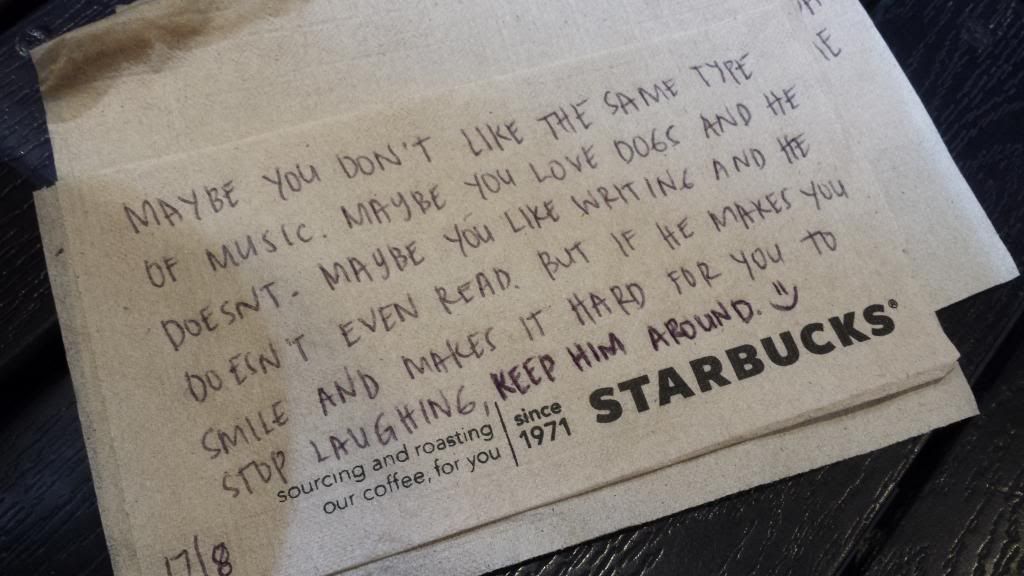 MAYBE YOU DON'T LIKE THE SAME TYPE
OF MUSIC. MAYBE YOU LOVE DOGS AND HE
DOESNT. MAYBE YOU LIKE WRITING AND HE
DOESN'T EVEN READ. BUT IF HE MAKES YOU
SMILE AND MAKES IT HARD FOR YOU TO
STOP LAUGHING, KEEP HIM AROUND. :)
sourcing and roasting
our coffee, for you
since
1971
STARBUCKS®
17/8